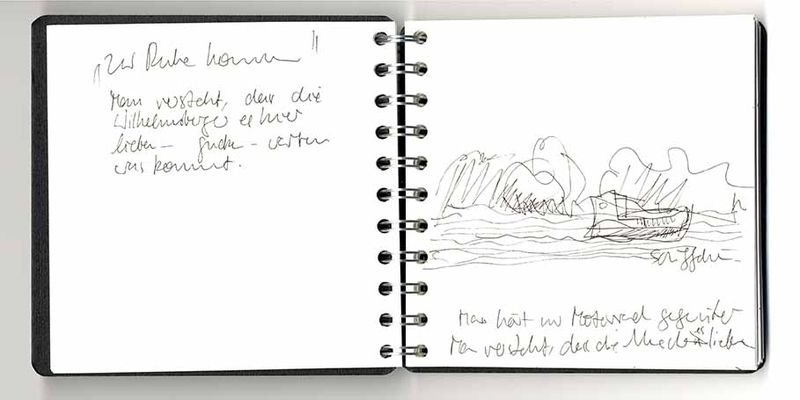 „Zur Ruhe kommen"
Man versteht, dass die
Wilhelmsburger es hier
lieben – gucken – warten
was kommt.
Schiffchen
Man hört Motorrad gegenüber
Man versteht, dass die es lieben